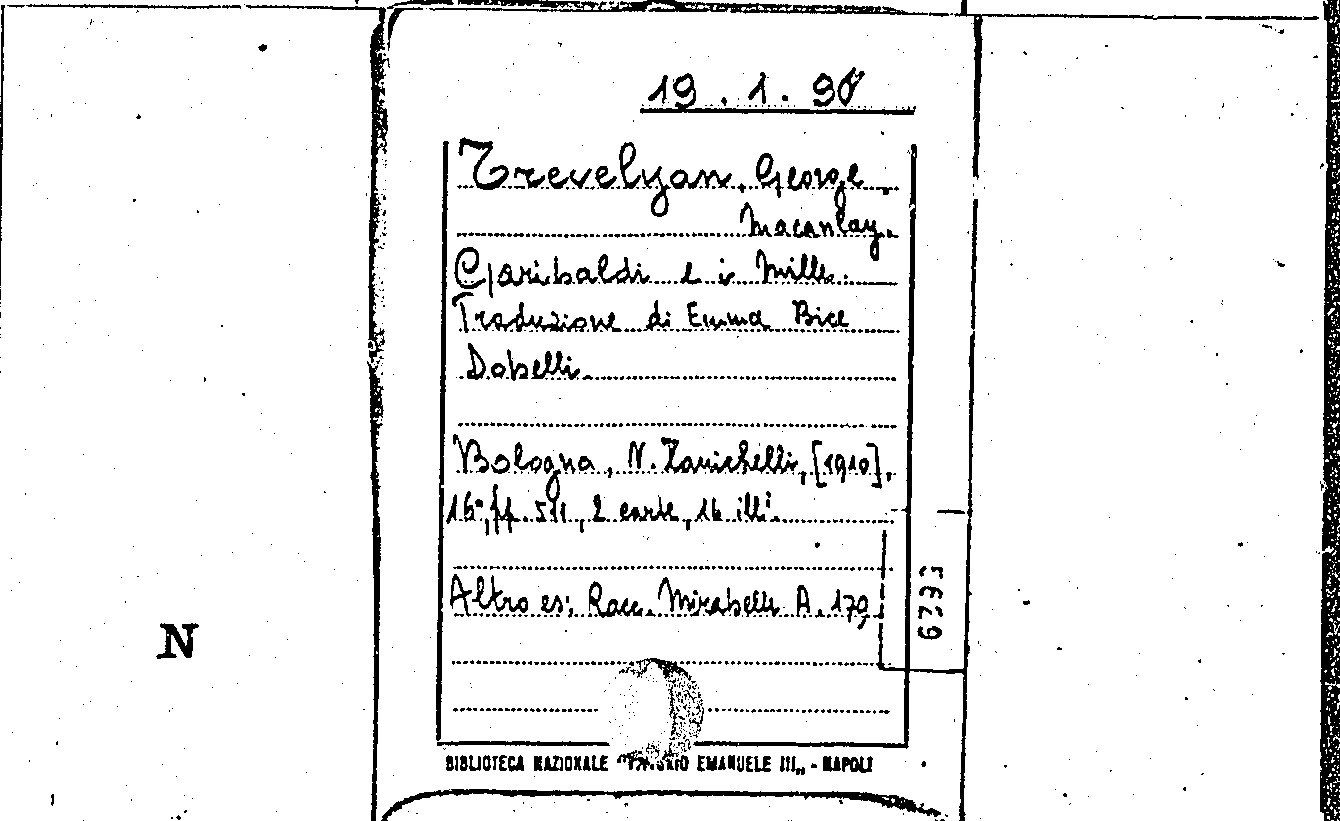 19.1.90
Trevelyan, George
Macanlay.
Garibaldi e i Mille.
Traduzione di Emma Bice
Dobelli.
Bologna, N. Zanichelli, [1910],
16°, pp. 511, 2 carte, 16 ill.
Altro es: Racc. Mirabelli A. 179
6793
N
BIBLIOTECA NAZIONALE EMANUELE III„ - NAPOLI